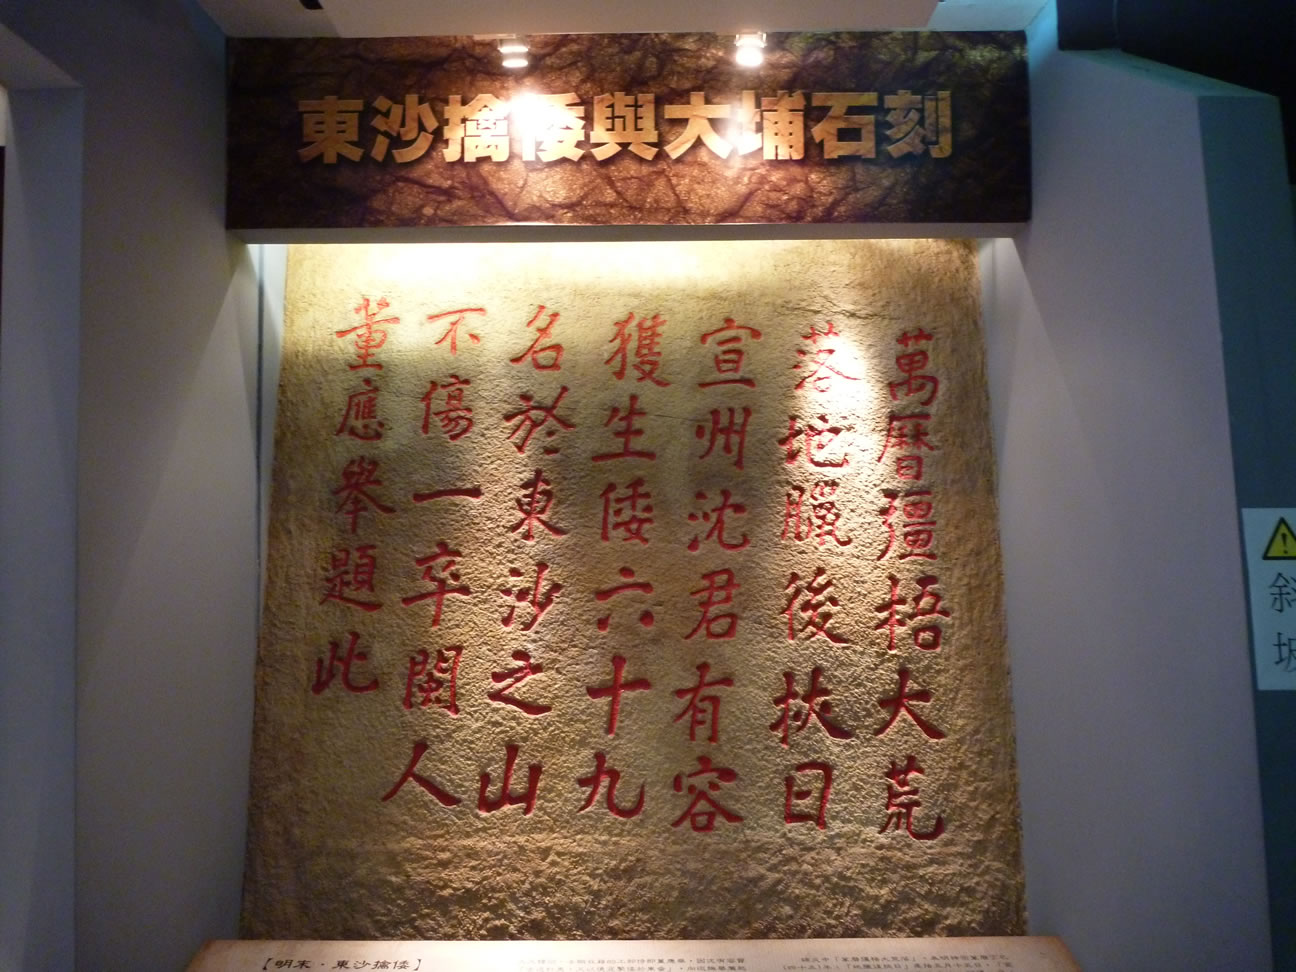 東沙擒倭與大埔石刻
萬曆彊梧大荒
落地臘後挾日
宣州沈君有容
獲生倭六十九
名於東沙之山
不傷一卒閩人
董應舉題此
【明末・東沙擒倭】
斜
坡